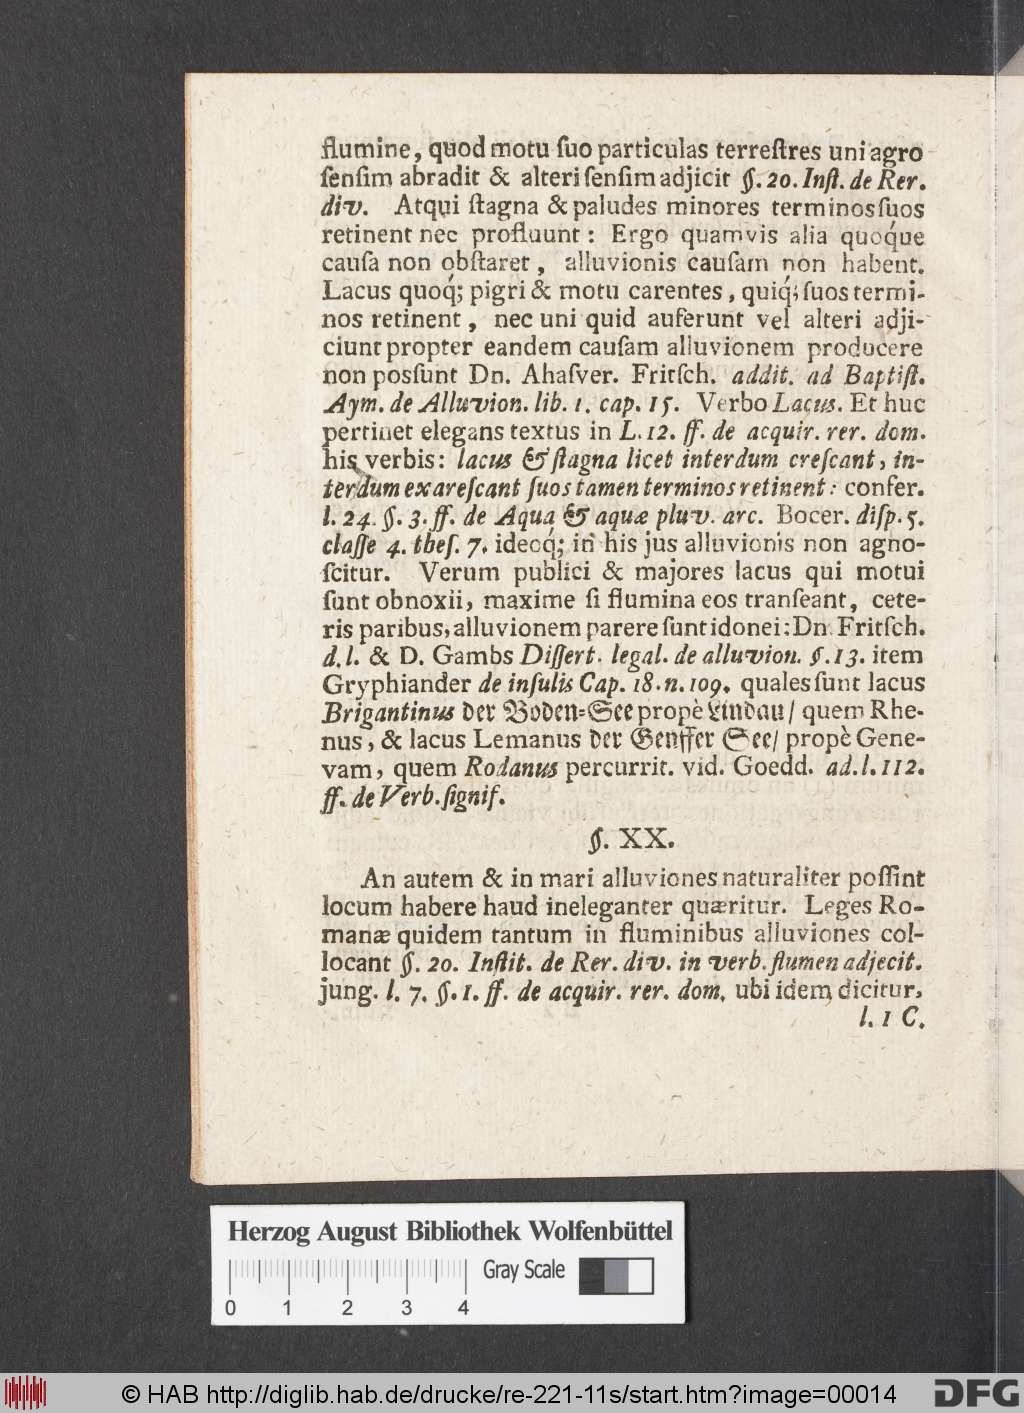 flumine, quod motu ſuo particulas terreſtres uni agro
ſenſim abradit & alteri ſenſim adjicit §. 20. Inſt. de Rer.
div. Atqui ſtagna & paludes minores terminos ſuos
retinent nec profluunt: Ergo quamvis alia quoque
cauſa non obſtaret, alluvionis cauſam non habent.
Lacus quoq́; pigri & motu carentes, quiq́; ſuos termi-
nos retinent, nec uni quid auferunt vel alteri adji-
ciunt propter eandem cauſam alluvionem producere
non posſunt Dn. Ahaſver. Fritſch. addit. ad Baptiſt.
Aym. de Alluvion. lib. 1. cap. 15. Verbo Lacus. Et huc
pertinet elegans textus in L. 12. ff. de acquir. rer. dom.
his verbis: lacus & ſtagna licet interdum creſcant, in-
terdum exareſcant ſuos tamen terminos retinent: confer.
l. 24. §. 3. ff. de Aqua & aquæ pluv. arc. Bocer. diſp. 5.
claſſe 4. theſ. 7. ideoq́; in his jus alluvionis non agno-
ſcitur. Verum publici & majores lacus qui motui
ſunt obnoxii, maxime ſi flumina eos tranſeant, cete-
ris paribus, alluvionem parere ſunt idonei: Dn. Fritſch.
d. l. & D. Gambs Diſſert. legal. de alluvion. §. 13. item
Gryphiander de inſulis Cap. 18. n. 109. quales ſunt lacus
Brigantinus der Boden-See propè Lindau/ quem Rhe-
nus, & lacus Lemanus der Genffer See/ propè Gene-
vam, quem Rodanus percurrit. vid. Goedd. ad. l. 112.
ff. de Verb. ſignif.
§. XX.
An autem & in mari alluviones naturaliter poſſint
locum habere haud ineleganter quæritur. Leges Ro-
manæ quidem tantum in fluminibus alluviones col-
locant §. 20. Inſtit. de Rer. div. in verb. flumen adjecit.
jung. l. 7. §. 1. ff. de acquir. rer. dom. ubi idem dicitur,
l. 1 C.
Herzog August Bibliothek Wolfenbüttel
Gray Scale
0 1 2 3 4
© HAB http://diglib.hab.de/drucke/re-221-11s/start.htm?image=00014
DFG